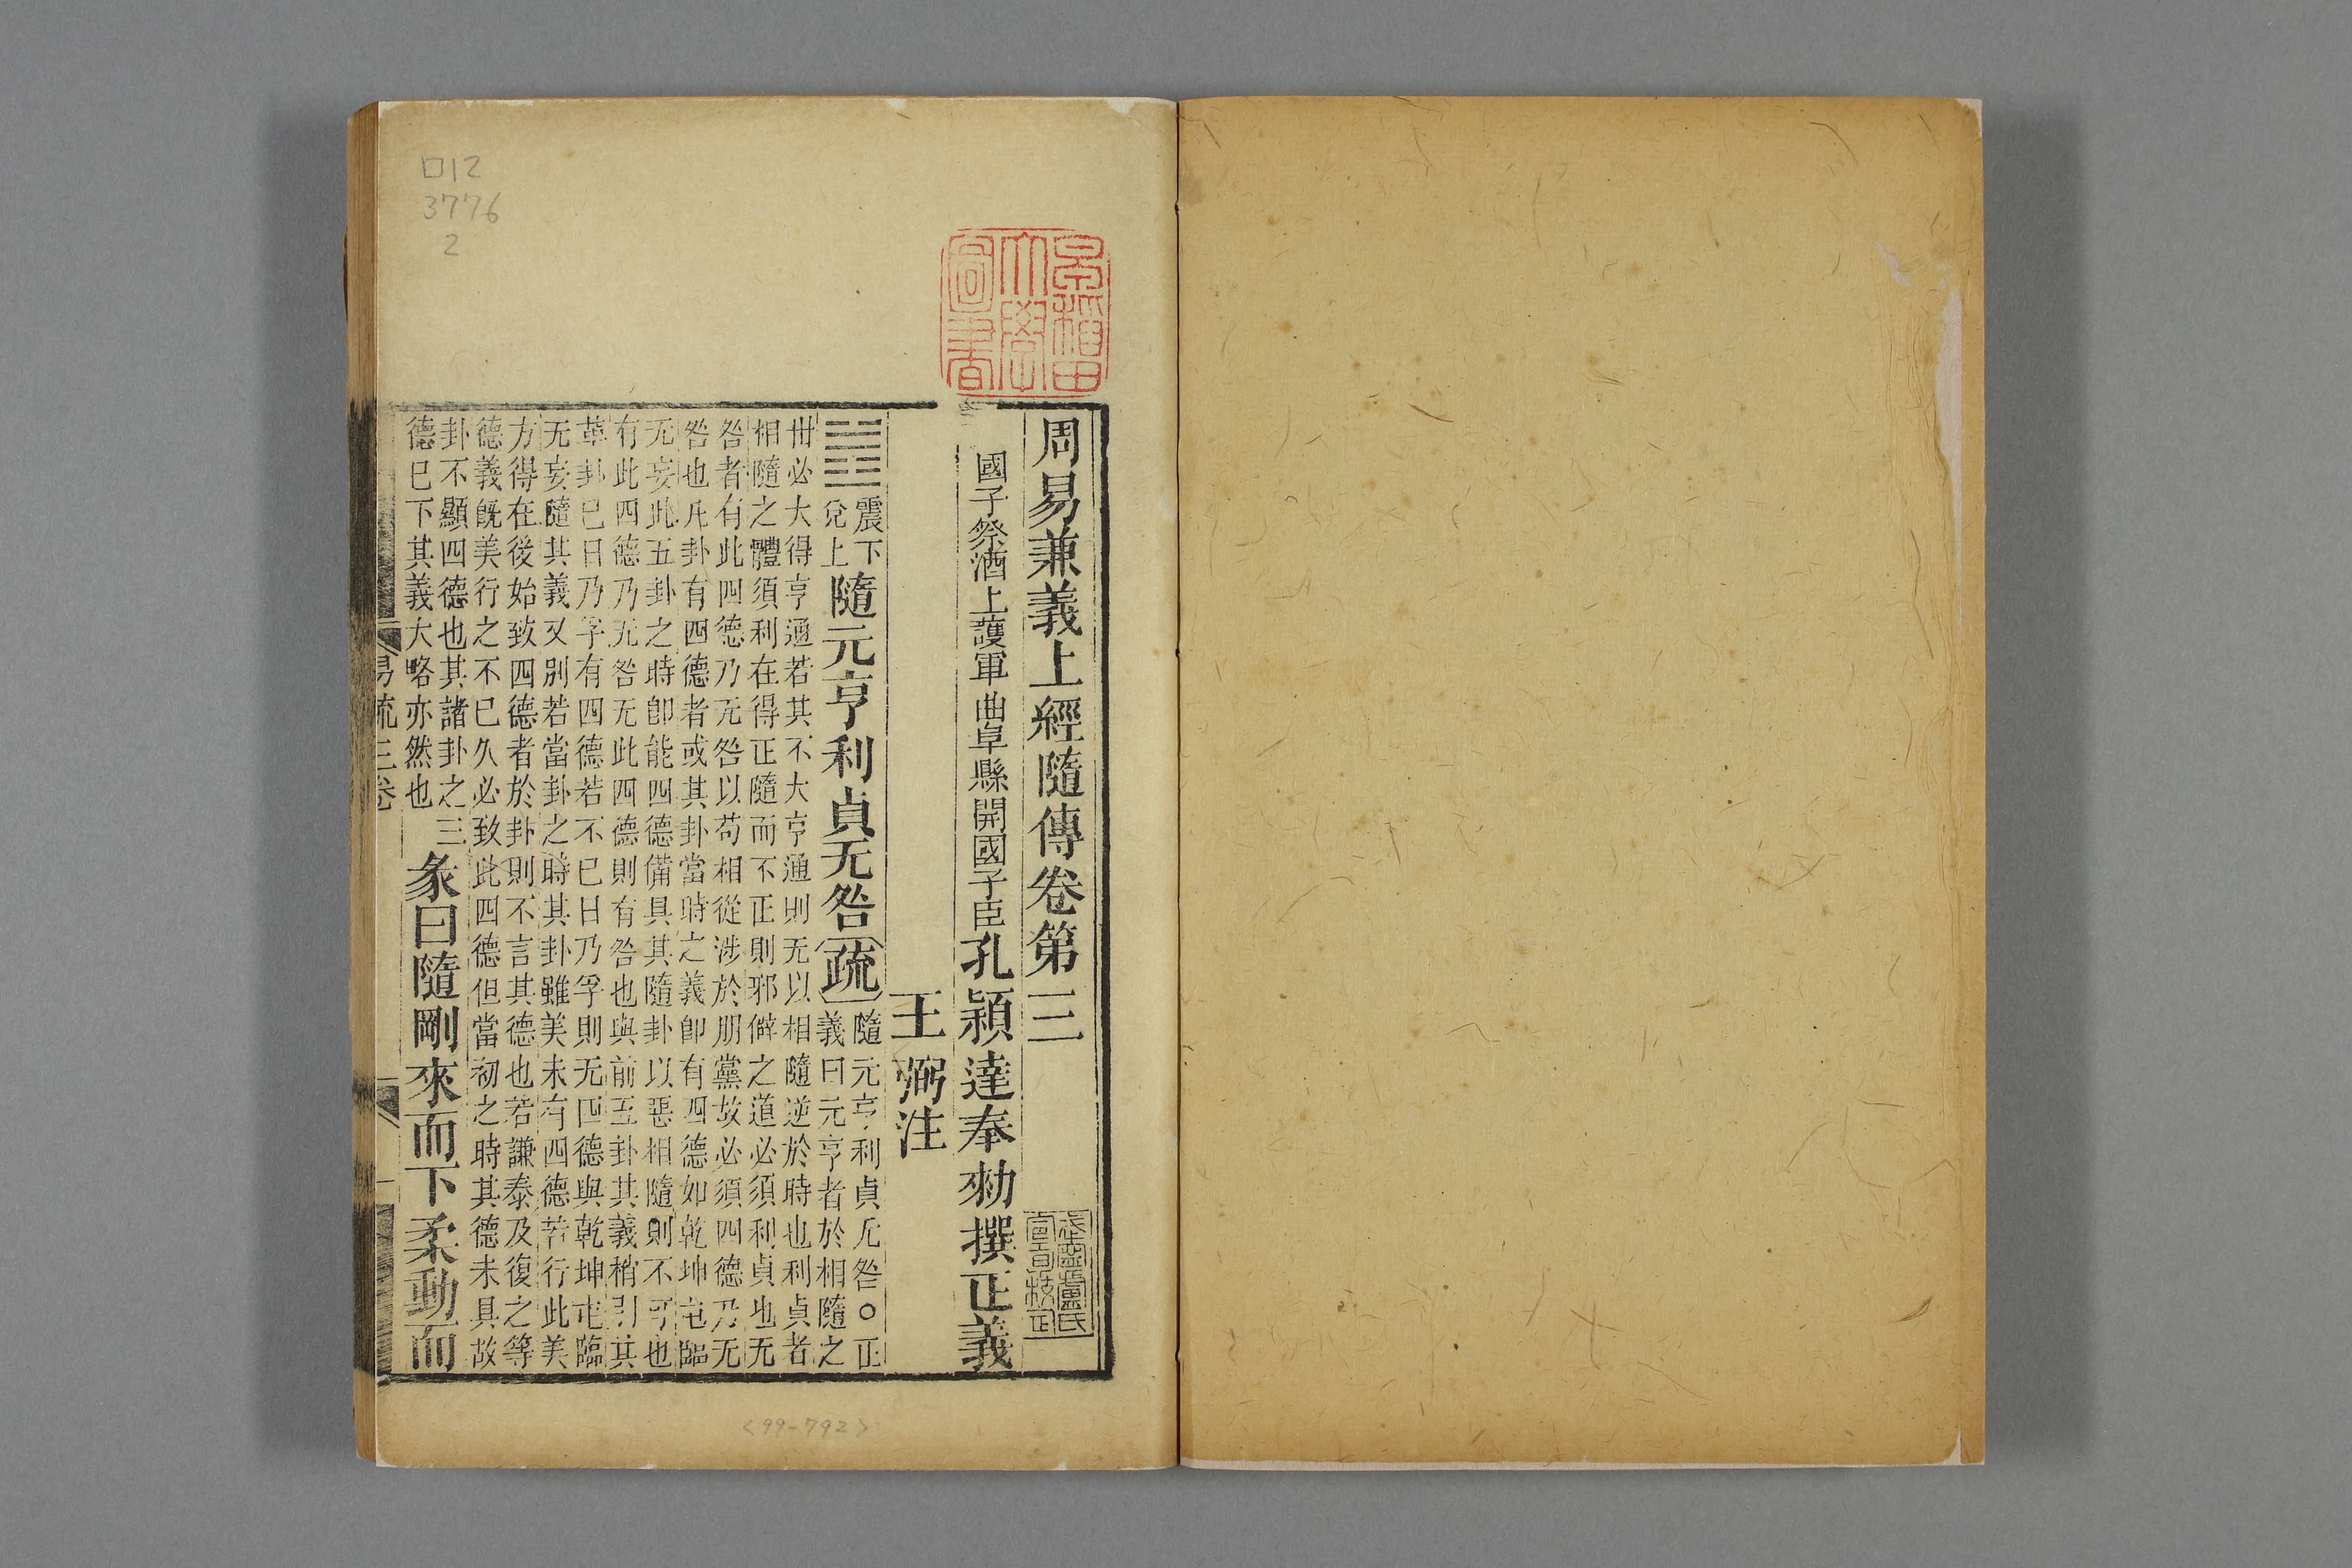 口12
3776
2
早稲田
大學
圖書
周易兼義上經隨傳卷第三
國子祭酒上護軍曲阜縣開國子臣孔穎達奉勑撰正義
王弼注
震下
兌上
隨元亨利貞无咎
疏
隨元亨利貞无咎○正
義曰元亨者於相隨之
世必大得亨通若其不大亨通則无以相隨逆於時也利貞者
相隨之體須利在得正隨而不正則邪僻之道必須利貞也无
咎者有此四德乃无咎以苟相從涉於朋黨故必須四德乃无
咎也凡卦有四德者或其卦當時之義卽有四德如乾坤屯臨
无妄此五卦之時卽能四德備具其隨卦以惡相隨則不可也
有此四德乃无咎无此四德則有咎也與前五卦其義稍別其
革卦已日乃孚有四德若不已日乃孚則无四德與乾坤屯臨
无妄隨其義又別若當卦之時其卦雖美未有四德若行此美
方得在後始致四德者於卦則不言其德也若謙泰及復之等
德義旣美行之不已久必致此四德但當初之時其德未具故
卦不顯四德也其諸卦之三
德已下其義大略亦然也
彖曰隨剛來而下柔動而
易疏三卷
一
<99-792>